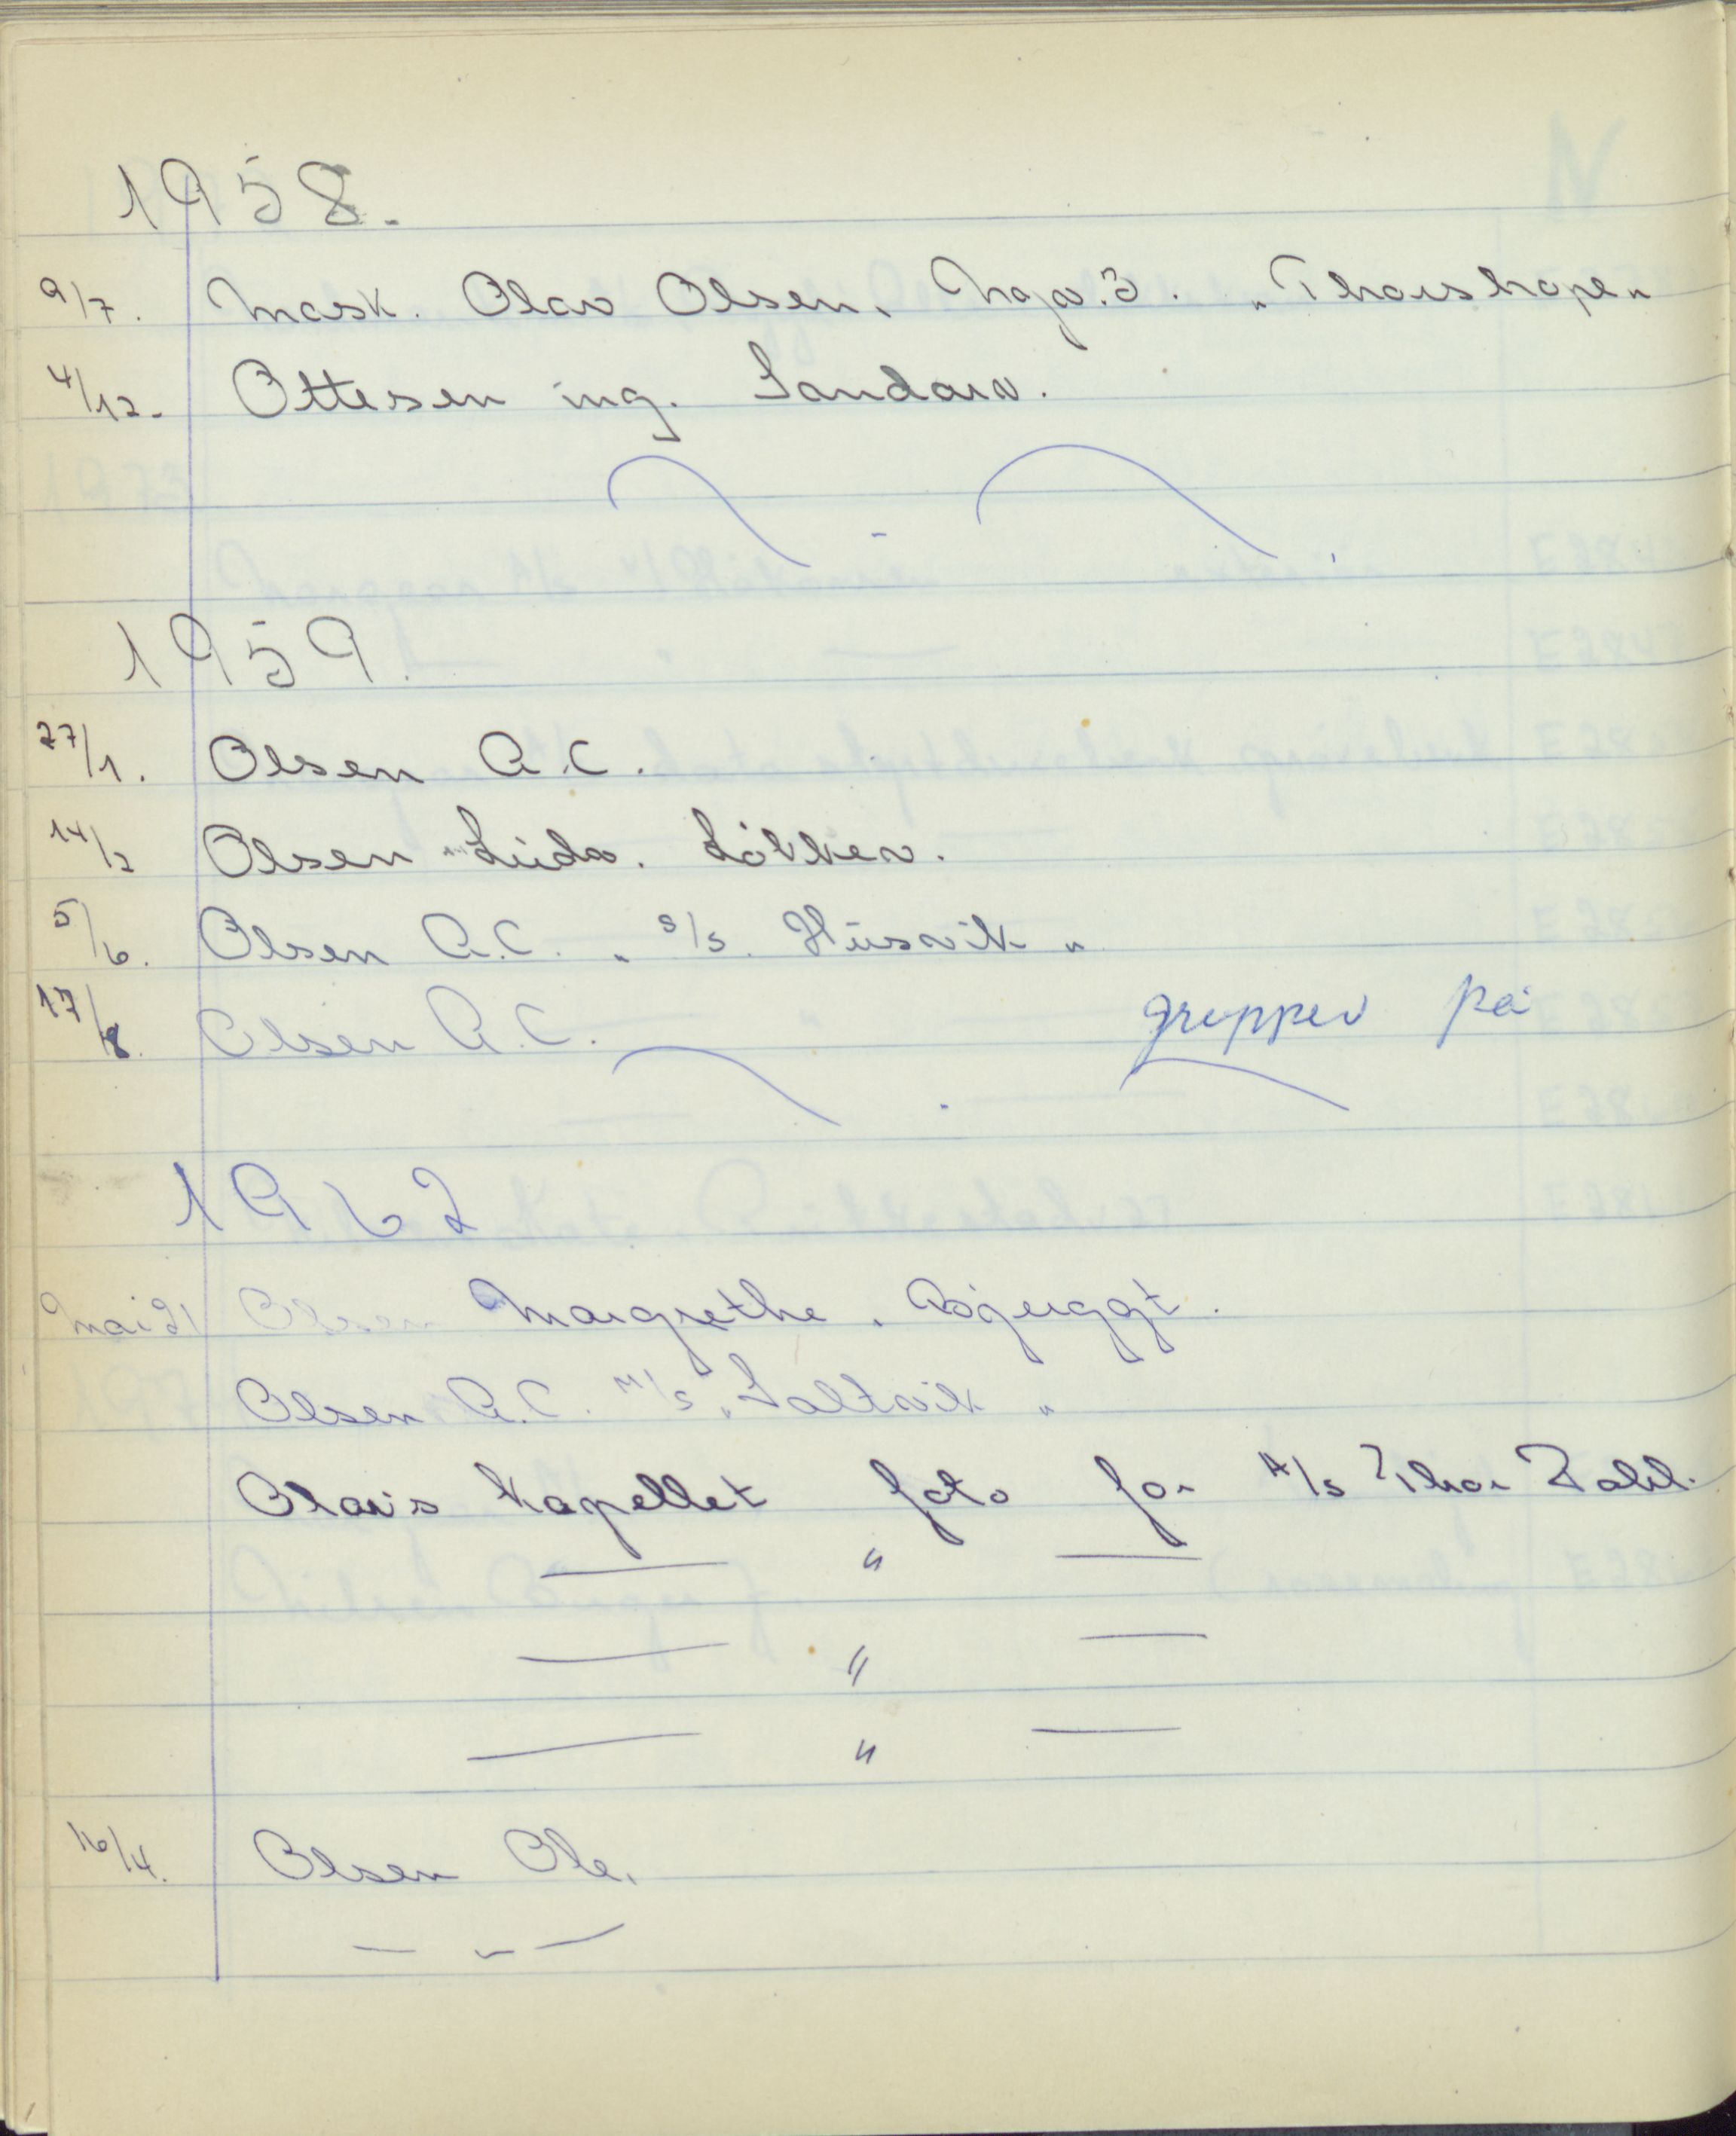 1958.
9/7. Mask. Olav Olsen. „Thorshope"
4/12. Ottesen ing. Sandar.
1959.
27/1. Olsen A.C.
14/2 Olsen Lükken.
5/6. Olsen A.C. „ S/S. Hüsvik "
17/8. Olsen A.C. grupper på
1962
mai 21 Olsen Margrethe. Bjerggt.
Olsen A.C. M/S „Saltvik "
Olavs kapellet foto for A/S Thor Dahl.
— " —
— " —
— " —
16/4. Olsen Ole.
— " —